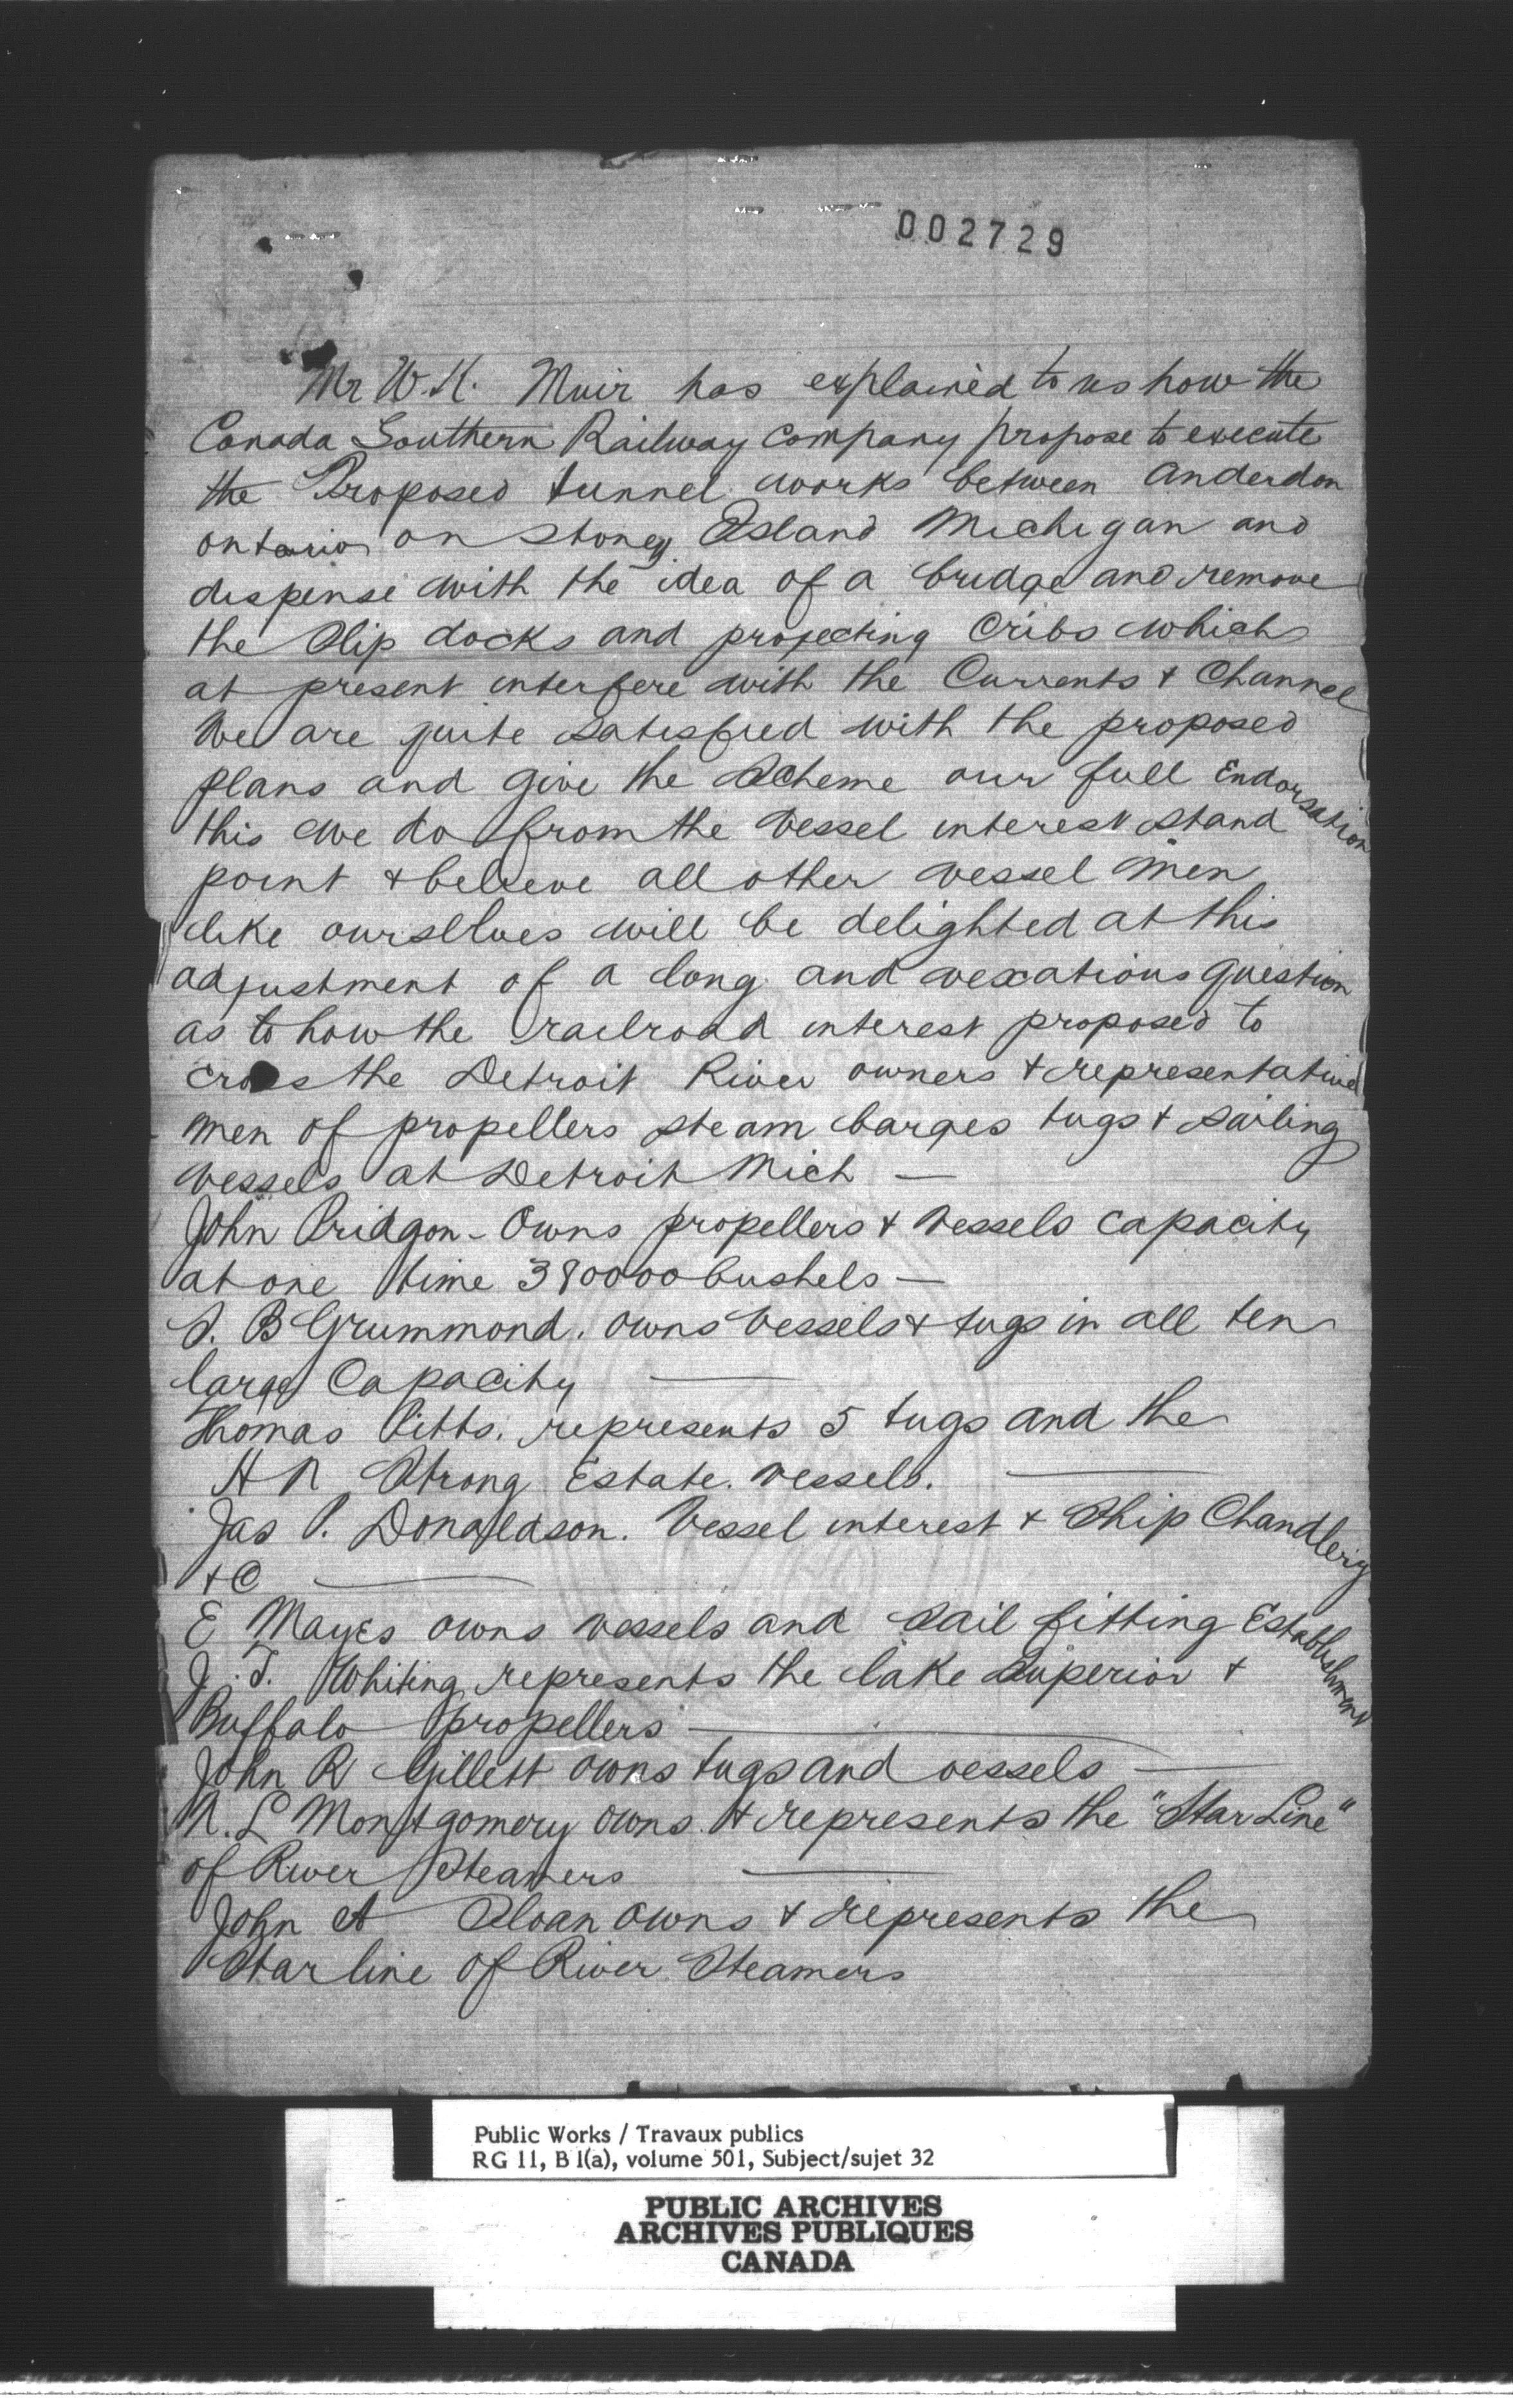 002729
Mr W. K. Muir has explained to us how the
Canada Southern Railway Company propose to execute
the Proposed tunnel works between Anderdon
Ontario on Stoney Island Michigan and
dispense with the idea of a bridge and remove
the Slip docks and projecting Cribs which
at present interfere with the Currents + Channel
We are quite satisfied with the proposed
plans and give the Scheme our full Endorsation
this we do from the Vessel interest stand
point + believe all other vessel men
like ourselves will be delighted at this
adjustment of a long and vexatious question
as to how the railroad interest proposed to
cross the Detroit River owners + representative
men of propellers steam barges tugs + sailing
vessels at Detroit Mich —
John Pridgon - Owns propellers + Vessels capacity
at one time 380000 bushels —
S. B Grummond. owns Vessels + tugs in all ten
large Capacity —
Thomas Pitts. represents 5 tugs and the
H N Strong Estate. vessels. —
Jas P. Donaldson. Vessel interest + Ship Chandlery
+ C —
E Mayes owns vessels and sail fitting Establishment
J. T. Whiting represents the lake Superior +
Buffalo propellers —
John R Gillett owns tugs and vessels —
N. L Montgomery owns + represents the "Star Line"
of River Steamers —
John A Sloan owns + represents the
Star line of River Steamers
Public Works / Travaux publics
RG 11, B 1(a), volume 501, Subject/sujet 32
PUBLIC ARCHIVES
ARCHIVES PUBLIQUES
CANADA